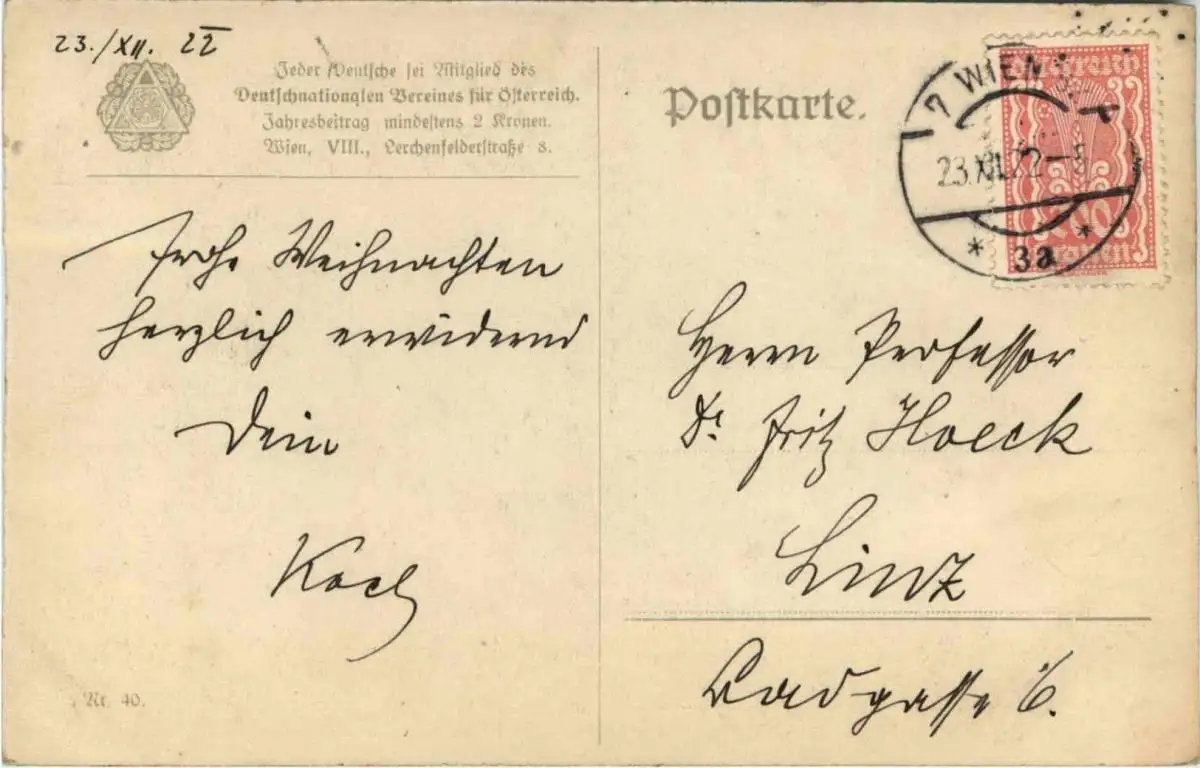 23./XII. 22
Jeder Deutsche sei Mitglied des
Deutschnationalen Vereines für Österreich.
Jahresbeitrag mindestens 2 Kronen.
Wien, VIII., Lerchenfelderstraße 8.
Postkarte.
7 WIEN
23.XII.22
* 3a *
Österreich
Frohe Weihnachten
herzlich erwidernd
Dein
Koch
Herrn Professor
Dr. Fritz Hoeck
Linz
Badgasse 6.
Nr. 40.